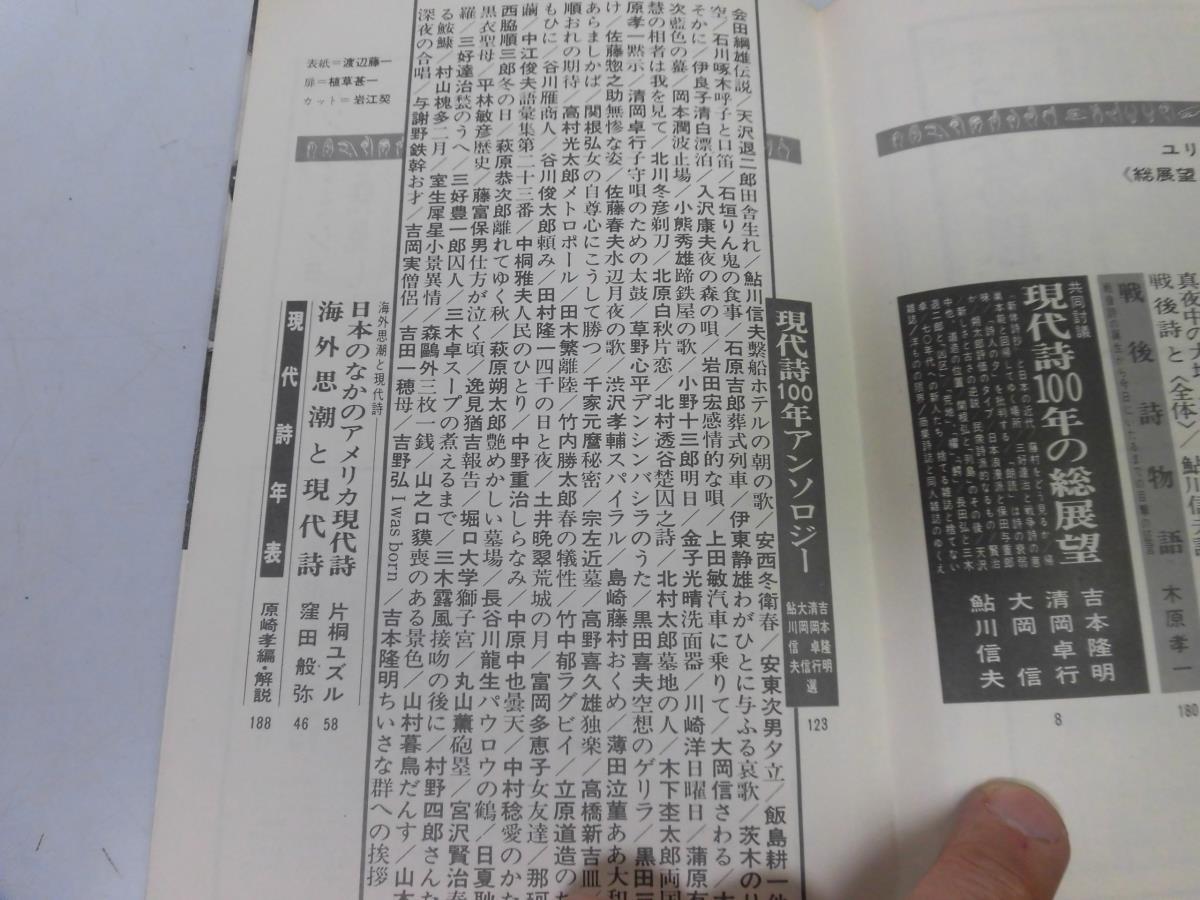 ユリ
《総展望
真夜中の大地
戦後詩と〈全体〉／鮎川信
戦後詩物語
木原孝一
180
共同討議
現代詩100年の総展望
吉本隆明
清岡卓行
大岡信
鮎川信夫
8
現代詩100年アンソロジー
吉本隆明
清岡卓行
大岡信
鮎川信夫
選
123
会田綱雄伝説／天沢退二郎田舎生れ／鮎川信夫繋船ホテルの朝の歌／安西冬衛春／安東次男夕立／飯島耕一他
空／石川啄木呼子と口笛／石垣りん鬼の食事／石原吉郎葬式列車／伊東静雄わがひとに与ふる哀歌／茨木のり
そかに／伊良子清白漂泊／入沢康夫夜の森の唄／岩田宏感情的な唄／上田敏汽車に乗りて／大岡信さわる／
次藍色の蟇／岡本潤波止場／小熊秀雄蹄鉄屋の歌／小野十三郎明日／金子光晴洗面器／川崎洋日曜日／蒲原有
慧の相者は我を見て／北川冬彦剃刀／北原白秋片恋／北村透谷楚囚之詩／北村太郎墓地の人／木下杢太郎両国
原孝一黙示／清岡卓行子守唄のための太鼓／草野心平デンシンバシラのうた／黒田喜夫空想のゲリラ／黒田三
け／佐藤惣之助無惨な姿／佐藤春夫水辺月夜の歌／渋沢孝輔スパイラル／島崎藤村おくめ／薄田泣菫ああ大和
あらましかば／関根弘女の自尊心にこうして勝つ／千家元麿秘密／宗左近墓／高野喜久雄独楽／高橋新吉皿／
順おれの期待／高村光太郎メトロポール／田木繁離陸／竹内勝太郎春の犠牲／竹中郁ラグビイ／立原道造のち
もひに／谷川雁商人／谷川俊太郎頼み／田村隆一四千の日と夜／土井晩翠荒城の月／富岡多恵子女友達／那珂
繭／中江俊夫語彙集第二十三番／中桐雅夫人民のひとり／中野重治しらなみ／中原中也曇天／中村稔愛のかた
西脇順三郎冬の日／萩原恭次郎離れてゆく秋／萩原朔太郎艶めかしい墓場／長谷川龍生パウロウの鶴／日夏耿
黒衣聖母／平林敏彦歴史／藤富保男仕方が泣く頃／逸見猶吉報告／堀口大学獅子宮／丸山薫砲塁／宮沢賢治春
羅／三好達治甃のうへ／三好豊一郎囚人／三木卓スープの煮えるまで／三木露風接吻の後に／村野四郎さんた
る鮟鱇／村山槐多二月／室生犀星小景異情／森鷗外三枚一銭／山之口貘喪のある景色／山村暮鳥だんす／山本
深夜の合唱／与謝野鉄幹お才／吉岡実僧侶／吉田一穂母／吉野弘I was born／吉本隆明ちいさな群への挨拶
海外思潮と現代詩
日本のなかのアメリカ現代詩
片桐ユズル
58
海外思潮と現代詩
窪田般弥
46
現代詩年表
原崎孝編・解説
188
表紙＝渡辺藤一
扉＝植草甚一
カット＝岩江契